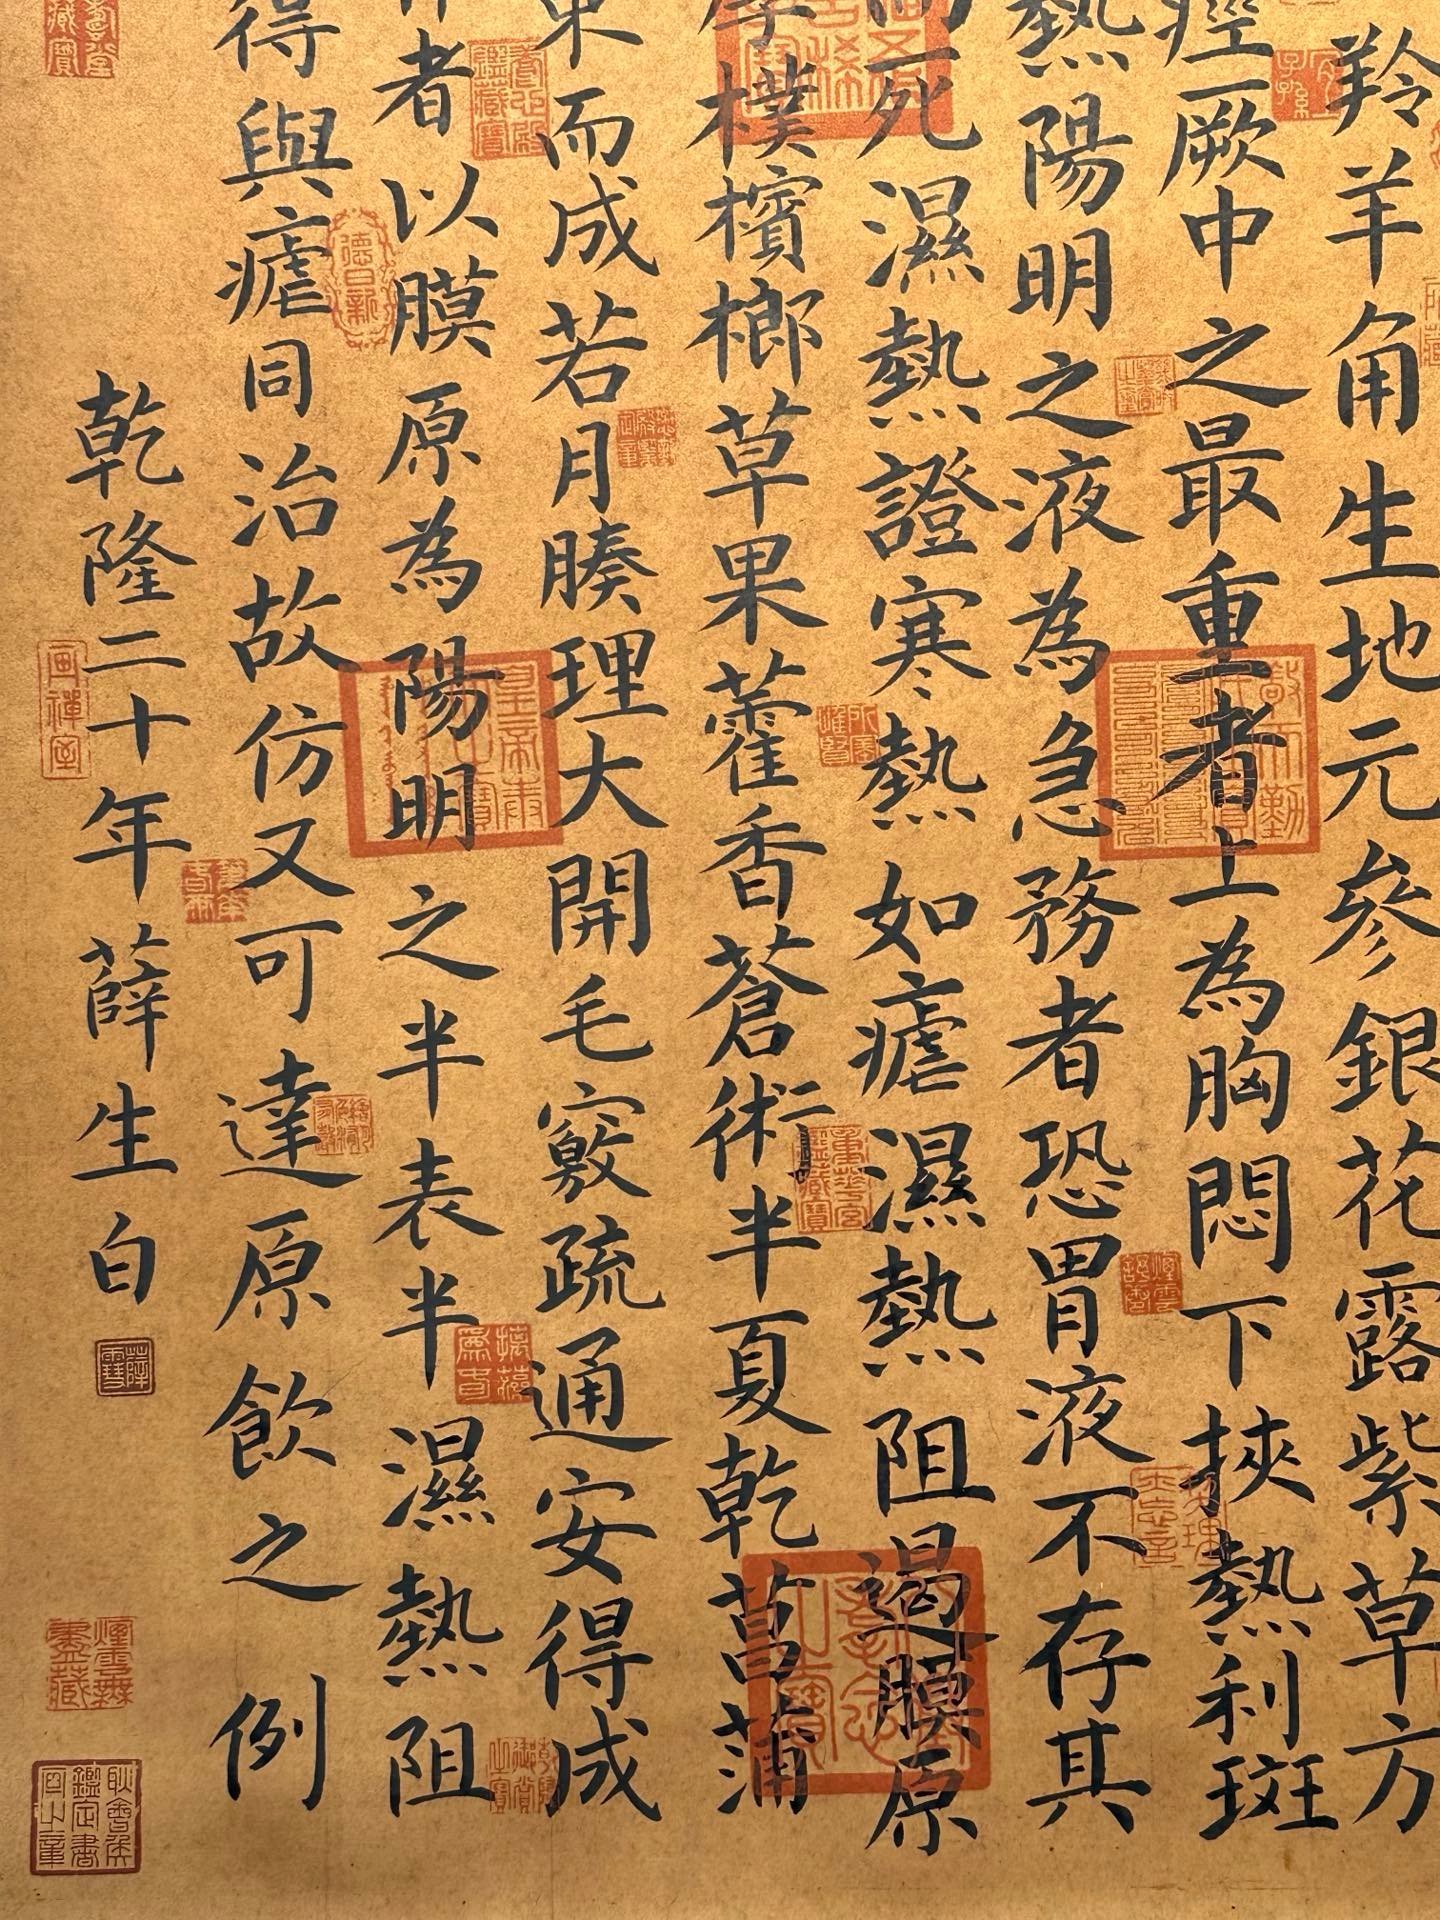 羚羊角生地元參銀花露紫草方
痙厥中之最重者上為胸悶下挾熱利斑
熱陽明之液為急務者恐胃液不存其
而死濕熱證寒熱如瘧濕熱阻遏膜原
樸檳榔草果藿香蒼術半夏乾菖蒲
二
東而成若月腠理大開毛竅疏通安得成
者以膜原為陽明之半表半濕熱阻
得與瘧同治故仿又可達原飲之例
乾隆二十年薛生白